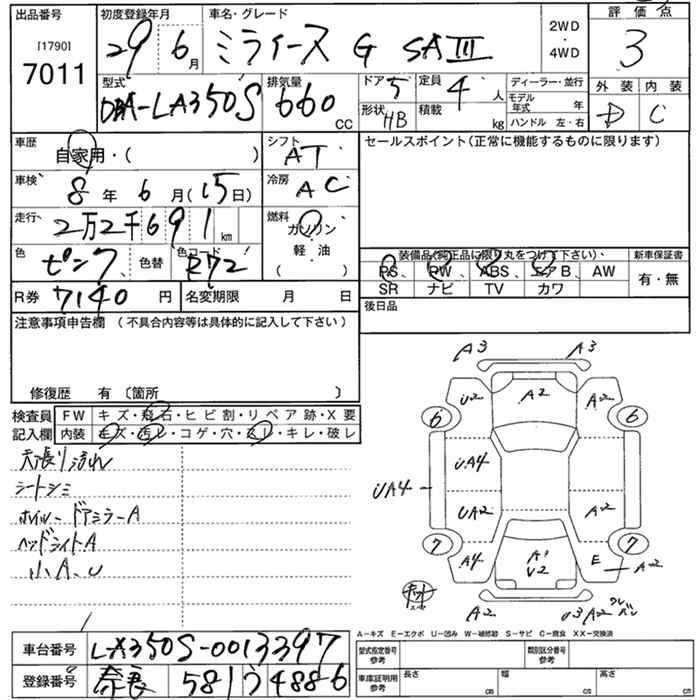 出品番号 初度登録年月 車名・グレード 2WD ・ 4WD 評価点
[1790]
7011 29 6月 ミライース G SAⅢ 3
型式 排気量 ドア 5 定員 4人 ディーラー・並行 外装 内装
DBA-LA350S 660 CC 形状 HB 積載 kg モデル年式 年 D C
ハンドル 左・右
車歴 自家用・( ) シフト AT セールスポイント(正常に機能するものに限ります)
車検 8年 6月(15日) 冷房 AC
走行 2万2千691km 燃料 ガソリン 軽・油 ( )
色 ピンク 色替 色コード R72 装備品(純正品に限り丸をつけて下さい) 新車保証書
PS PW ABS エアB AW 有・無
SR ナビ TV カワ
R券 7140円 名変期限 月 日 後日品
注意事項申告欄 (不具合内容等は具体的に記入して下さい)
修復歴 有〔箇所 〕
検査員 FW キズ・飛石・ヒビ割・リペア跡・X要
記入欄 内装 キズ・汚レ・コゲ・穴・スレ・キレ・破レ
天張リ汚れ
シートシミ
ホイル- ドアミラーA
ヘッドライトA
小A、U
A3 A3
U2 A2 A2
6 6
UA4
UA4
UA2 A2
7 7
A4 A1 U2 E A2
A2 U3 A2
A-キズ E-エクボ U-凹み W-補修跡 S-サビ C-腐食 XX-交換済
車台番号 LA350S-0013397
型式指定番号 参考 類別区分番号 参考
登録番号 奈良 581 う 488-6
車庫証明用 参考 長さ cm 幅 cm 高さ cm